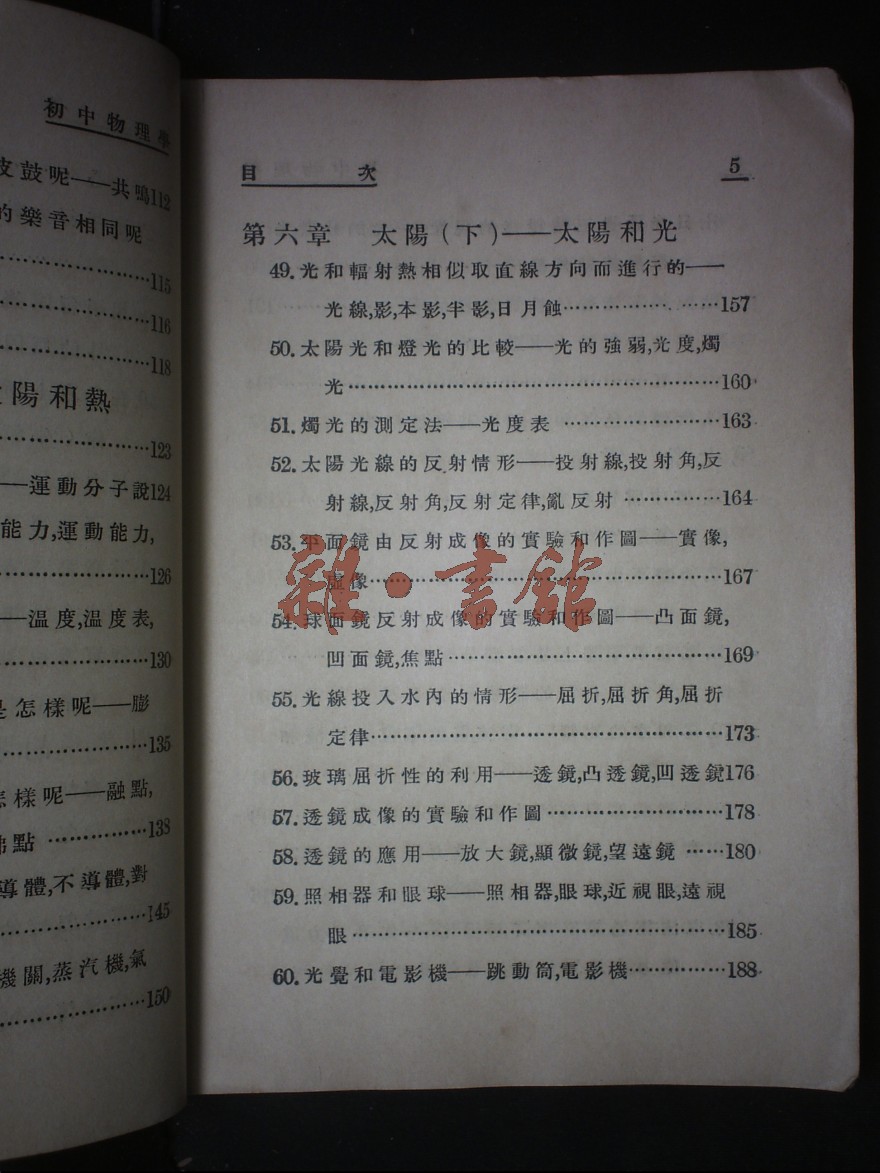 初中物理學
皮鼓呢——共鳴112
的樂音相同呢
……115
……116
……118
陽和熱
……123
——運動分子說124
能力,運動能力,
……126
——温度,温度表,
……130
是怎樣呢——膨
……135
怎樣呢——融點,
沸點……138
導體,不導體,對
……145
機關,蒸汽機,氣
……150
目次 5
第六章 太陽(下)——太陽和光
49.光和輻射熱相似取直線方向而進行的——
光線,影,本影,半影,日月蝕……157
50.太陽光和燈光的比較——光的強弱,光度,燭
光……160
51.燭光的測定法——光度表……163
52.太陽光線的反射情形——投射線,投射角,反
射線,反射角,反射定律,亂反射……164
53.平面鏡由反射成像的實驗和作圖——實像,
虛像……167
54.球面鏡反射成像的實驗和作圖——凸面鏡,
凹面鏡,焦點……169
55.光線投入水內的情形——屈折,屈折角,屈折
定律……173
56.玻璃屈折性的利用——透鏡,凸透鏡,凹透鏡176
57.透鏡成像的實驗和作圖……178
58.透鏡的應用——放大鏡,顯微鏡,望遠鏡……180
59.照相器和眼球——照相器,眼球,近視眼,遠視
眼……185
60.光覺和電影機——跳動筒,電影機……188
雜·書館